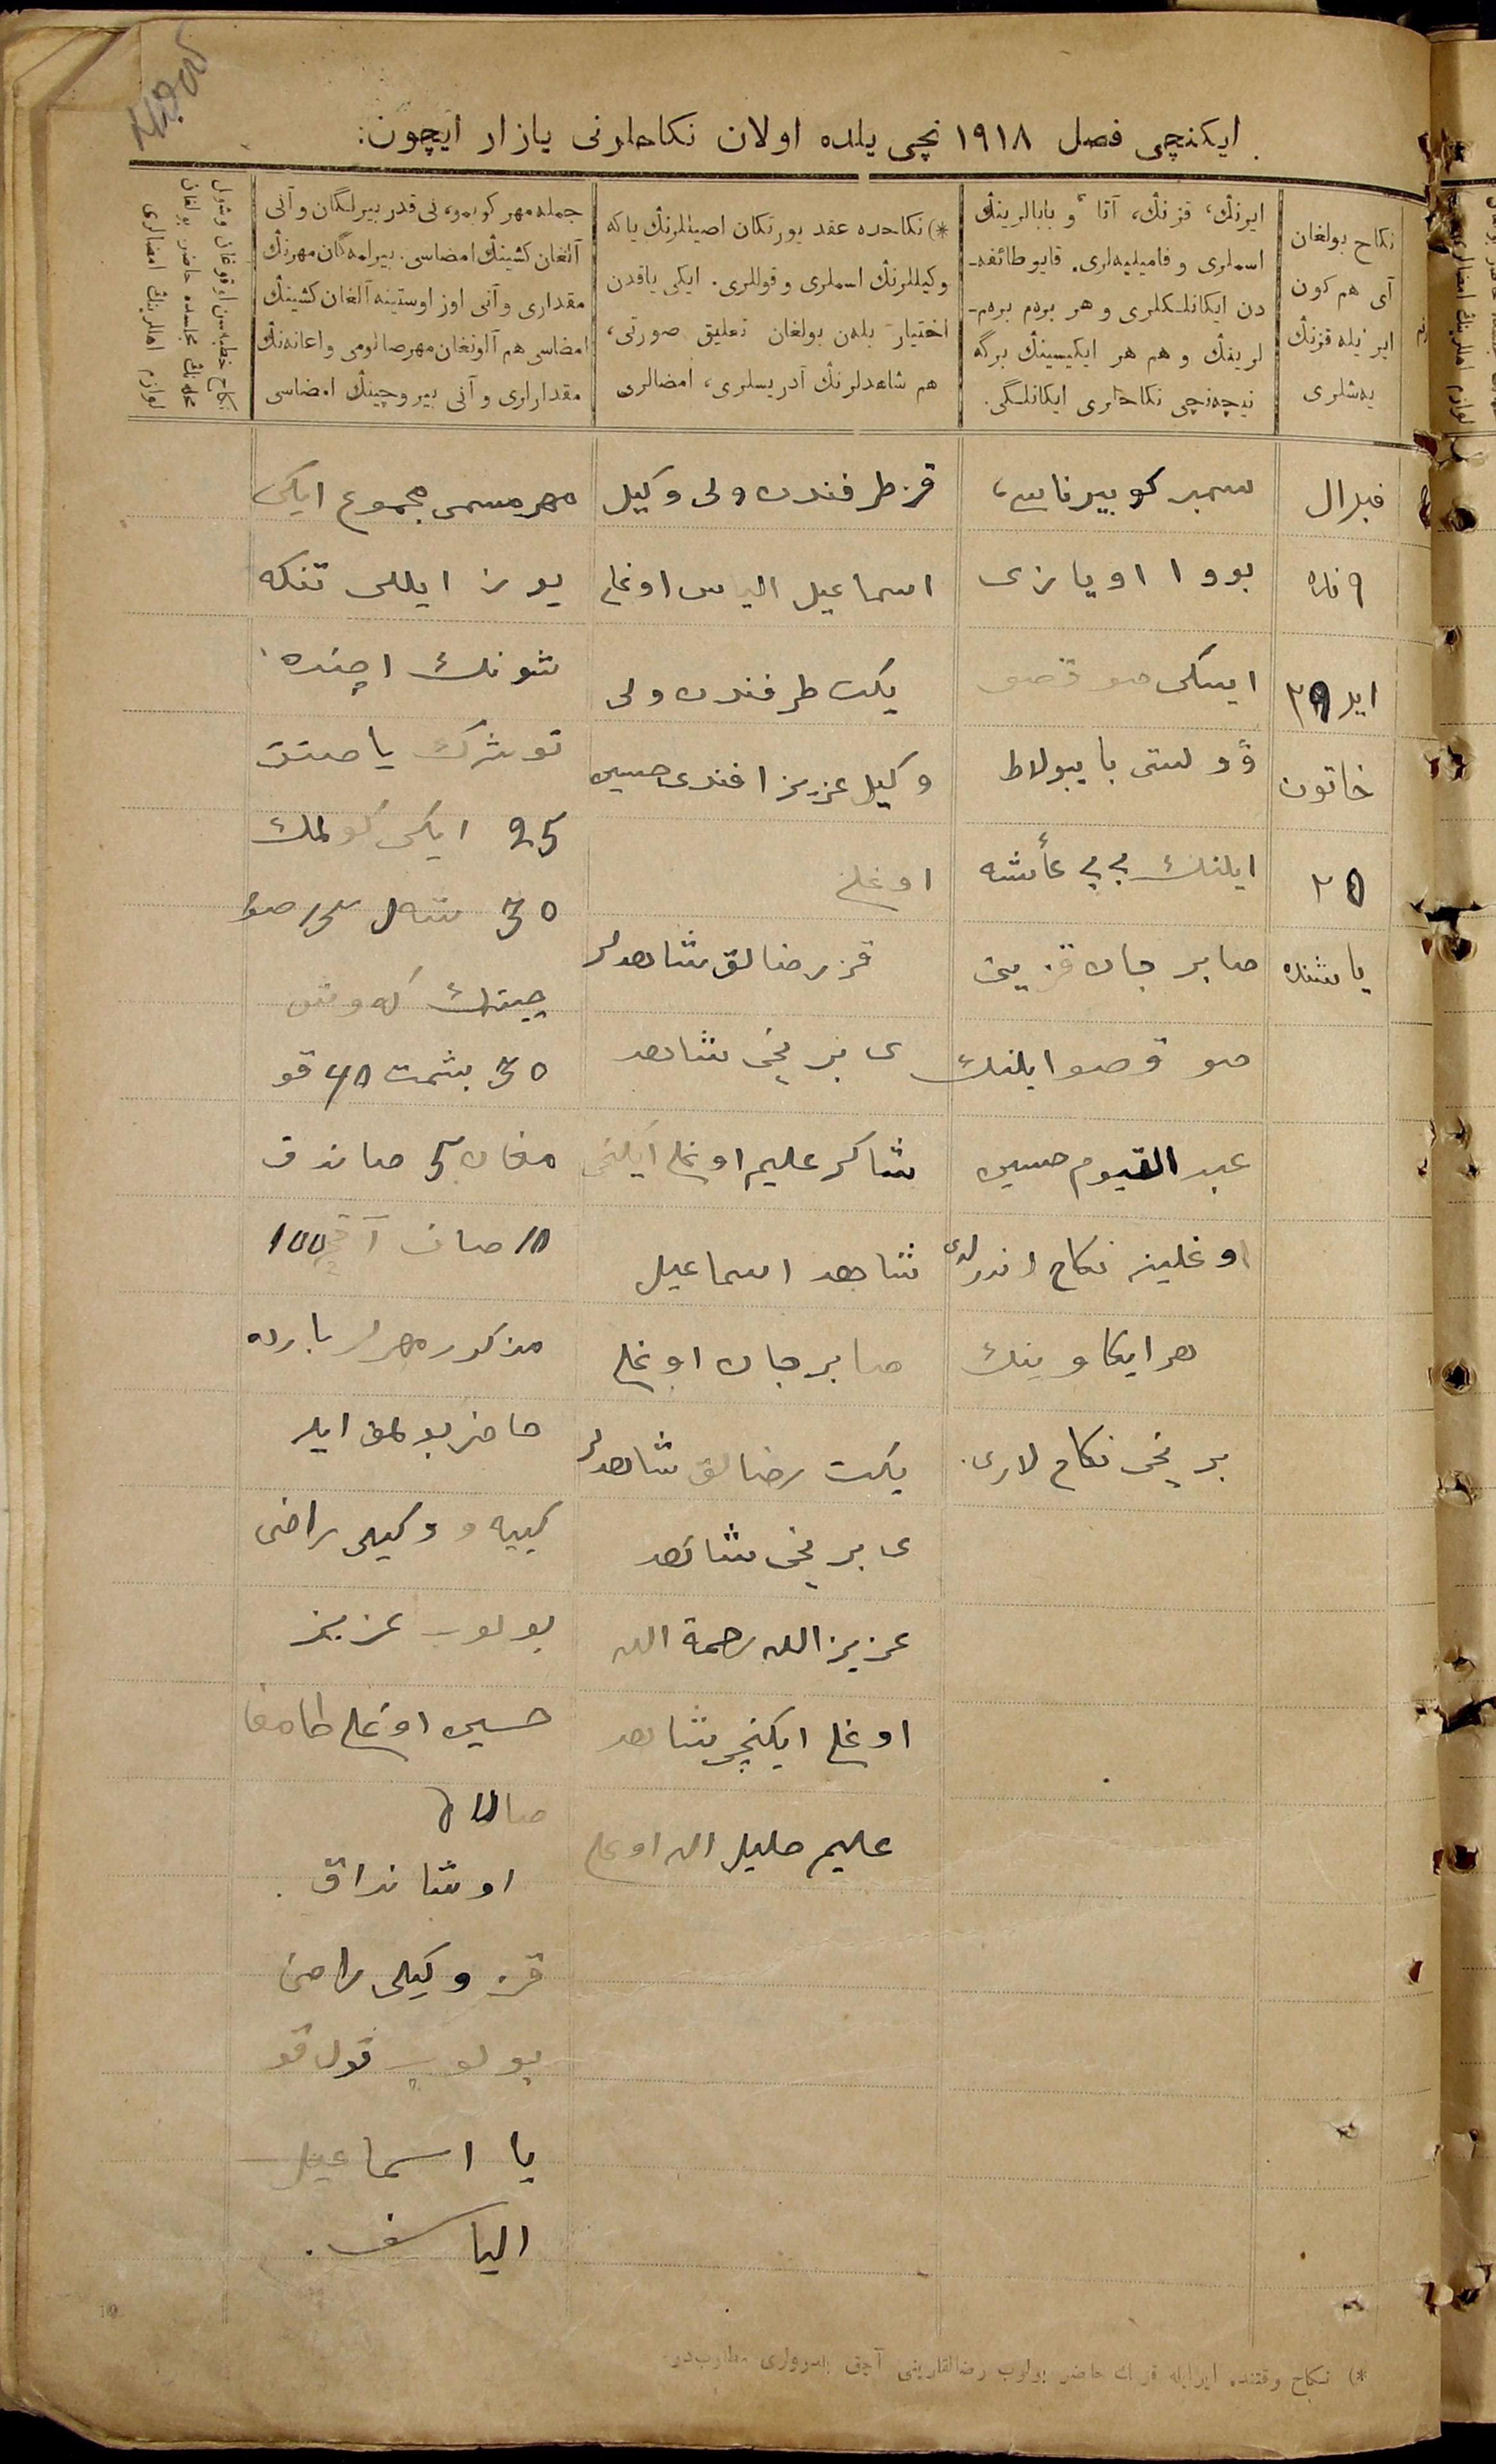 ایکنچی فصل ١٩١٨ نچی یلده اولان نکاحلرنی یازار ایچون:
نکاح بولغان
آی هم کون
ایر نیله قزنڭ
یەشلری
ایرنڭ، قزنڭ، آتا و بابالرینڭ
اسملری و فامیلیەلری. قایو طائفه-
دن ایکانلکلری و هر برەم برەم-
لرینڭ و هم هر ایکیسینڭ برگه
نیچەنچی نکاحلری ایکانلگی.
*) نکاحده عقد یورتکان اصیللرنڭ یاکه
وکیللرنڭ اسملری و قوللری. ایکی یاقدن
اختیار بلەن بولغان تعلیق صورتی،
هم شاهدلرنڭ آدریسلری، امضالری
جمله مهر کوبمو، نی قدر بیرلگان و آنی
آلغان کشینڭ امضاسی. بیرلمەگان مهرنڭ
مقداری و آنی اوز اوستینه آلغان کشینڭ
امضاسی هم آلونغان مهر صالومی و اعانەنڭ
مقدارلری و آنی بیروچینڭ امضاسی
نکاح خطبەسن اوقوغان وشول
محلەنڭ مجلسده حاضر بولغان
لوازم اهللرینڭ امضالری
فیرال
٩ نده
ایر ٢٩
خاتون
٢٥
یاشنده
سمبر کوبیرناسی،
بووا اویازی
ایسکی صوقصو
وولستی بایبولاط
ایلنڭ بی بی عائشه
صابر جان قزینی
صوقصو ایلنڭ
عبد القیوم حسین
اوغلینه نکاح اندرلدی
هر ایکاوینڭ
برنچی نکاح لاری.
قز طرفندن ولی وکیل
اسماعیل الیاس اوغلی
یکت طرفندن ولی
وکیل عزیز افندی حسین
اوغلی
قز رضالق شاهدلر
ی برنچی شاهد
شاکر علیم اوغلی ایکنچی
شاهد اسماعیل
صابر جان اوغلی
یکت رضالق شاهدلر
ی برنچی شاهد
عزیز الله رحمة الله
اوغلی ایکنچی شاهد
علیم خلیل الله اوغلی
مهر مسمی مجموع ایکی
یوز ایللی تنکه
شونڭ اچنده
توشرک یاصتق
25 ایکی کولمک
30 شال
چیتڭ که وش
30 بشمت 40 قو
مغان 5 صاندق
10 صاف آقچه 100
مذکور مهرلر بارده
حاضر بولمق ایله
وکیلی راضی
بولوب عزیز
حسین اوغلی طامغا
صالا
اوشانداق.
قز وکیلی راضی
بولوب قول قو
یا اسماعیل
الیاسف.
*) نکاح وقتنده ایر ایله قزنڭ حاضر بولوب رضالقلرینی آچق بلدرولری مطلوب‌در.